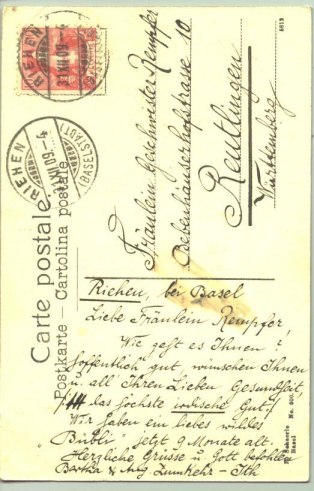 RIEHEN
31.XII.09
RIEHEN
31.XII.09-4
(BASELSTADT)
5813
Carte postale
Postkarte – Cartolina postale
Fräulein Geschwister Rempfer
Bebenhäuserhofstrasse 10
Reutlingen
Württemberg
Riehen, bei Basel
Liebe Fräulein Rempfer,
Wie geht es Ihnen?
hoffentlich gut, wünschen Ihnen
u. all Ihren Lieben Gesundheit,
das höchste irdische Gut!
Wir haben ein liebes
"Bübli" jetzt 9 Monate alt.
Herzliche Grüsse u. Gott befohlen
Zumkehr-
Basel